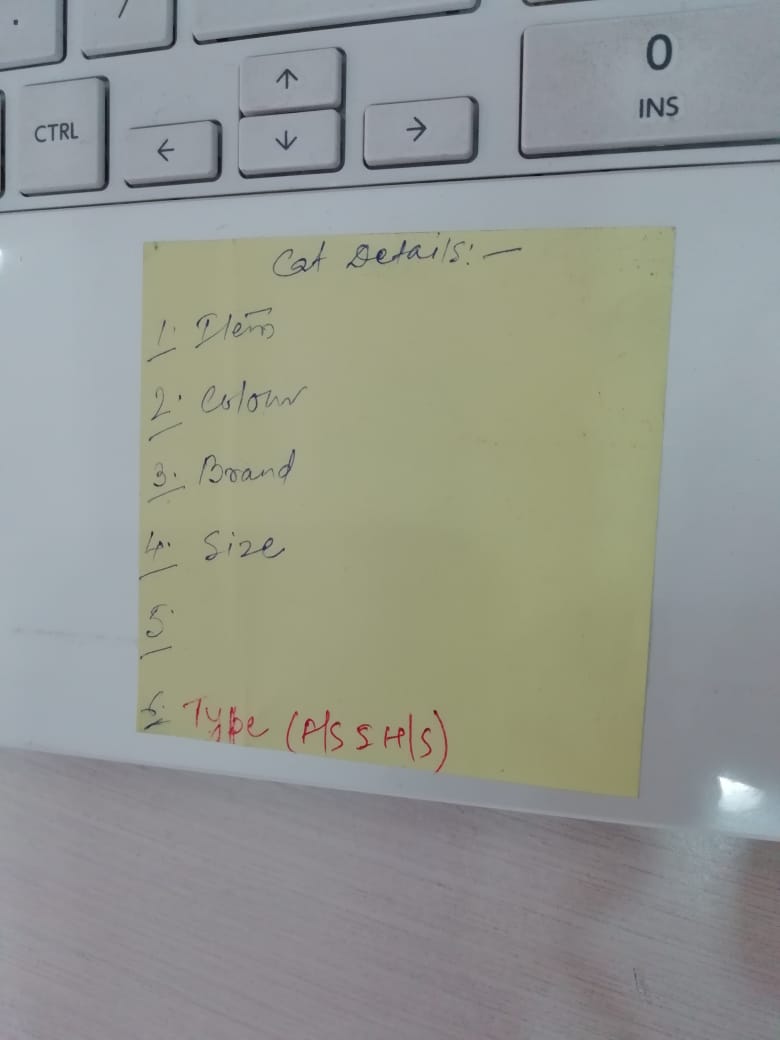 .
/
↑
0
CTRL
←
↓
→
INS
Cat Details:-
1. Item
2. Colour
3. Brand
4. Size
5.
6. Type (F/S & H/S)